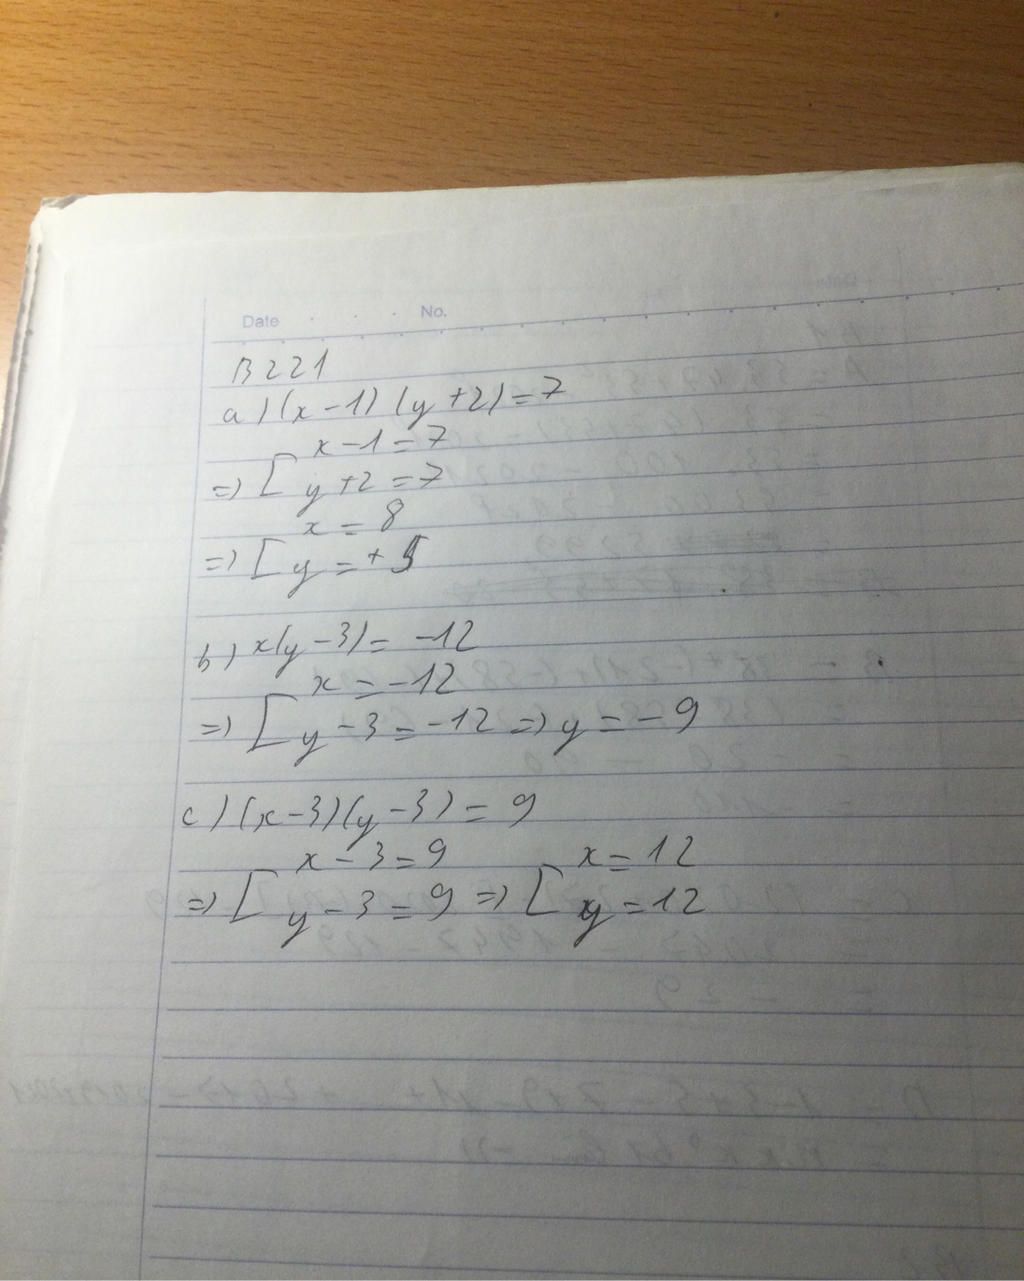 Date No.
B221
a) (x-1) (y+2)=7
x-1=7
=> [ y+2=7
x = 8
=> [ y = +5
b) x(y-3)= -12
x = -12
=> [ y-3=-12 => y = -9
c) (x-3)(y-3) = 9
x-3=9 x=12
=> [ y-3=9 => [ y=12